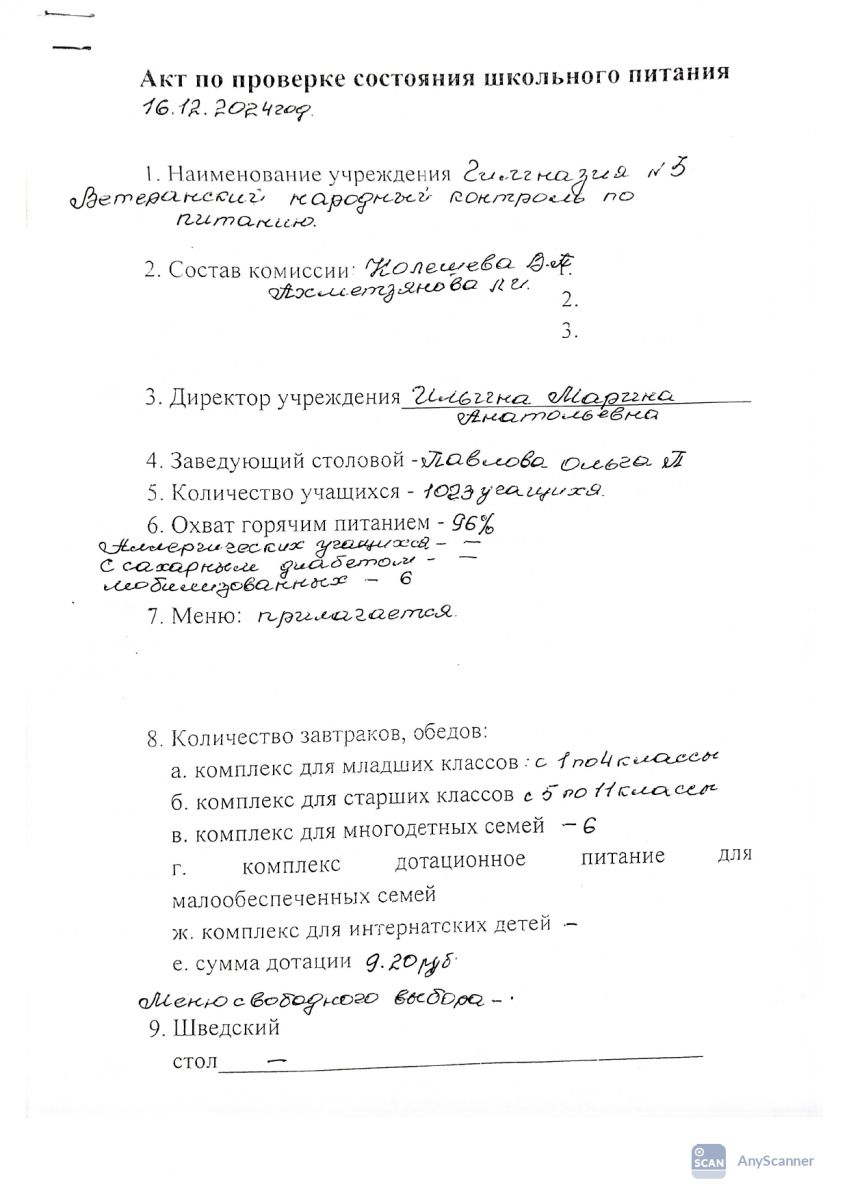 Акт по проверке состояния школьного питания
16.12.2024год.
1. Наименование учреждения Гимназия №3
Ветеранский народный контроль по
питанию.
2. Состав комиссии: Колешева В.А 1.
Ахметзянова Л.И. 2.
3.
3. Директор учреждения Ильина Марина
Анатольевна
4. Заведующий столовой - Павлова Ольга П
5. Количество учащихся - 1023 учащихся.
6. Охват горячим питанием - 96%
Аллергических учащихся - –
С сахарным диабетом - –
мобилизованных - 6
7. Меню: прилагается.
8. Количество завтраков, обедов:
а. комплекс для младших классов : с 1 по 4 классы
б. комплекс для старших классов с 5 по 11 классы
в. комплекс для многодетных семей – 6
г. комплекс дотационное питание для
малообеспеченных семей
ж. комплекс для интернатских детей –
е. сумма дотации 9.20 руб.
Меню свободного выбора - .
9. Шведский
стол –
SCAN AnyScanner